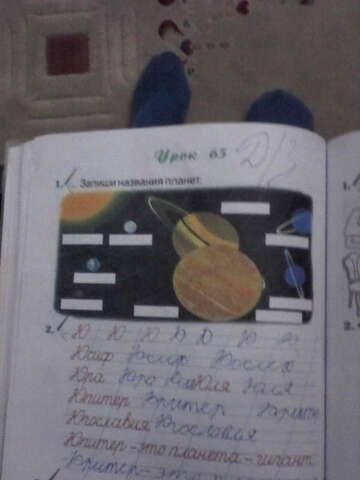 Урок 65 Д/з
1. Запиши названия планет.
2. Ю Ю Ю Ю Ю Ю
Юсиф Юсиф
Юра Юра Юля Юля
Юпитер Юпитер
Югославия Югославия
Юпитер – это планета – гигант
Юпитер – это